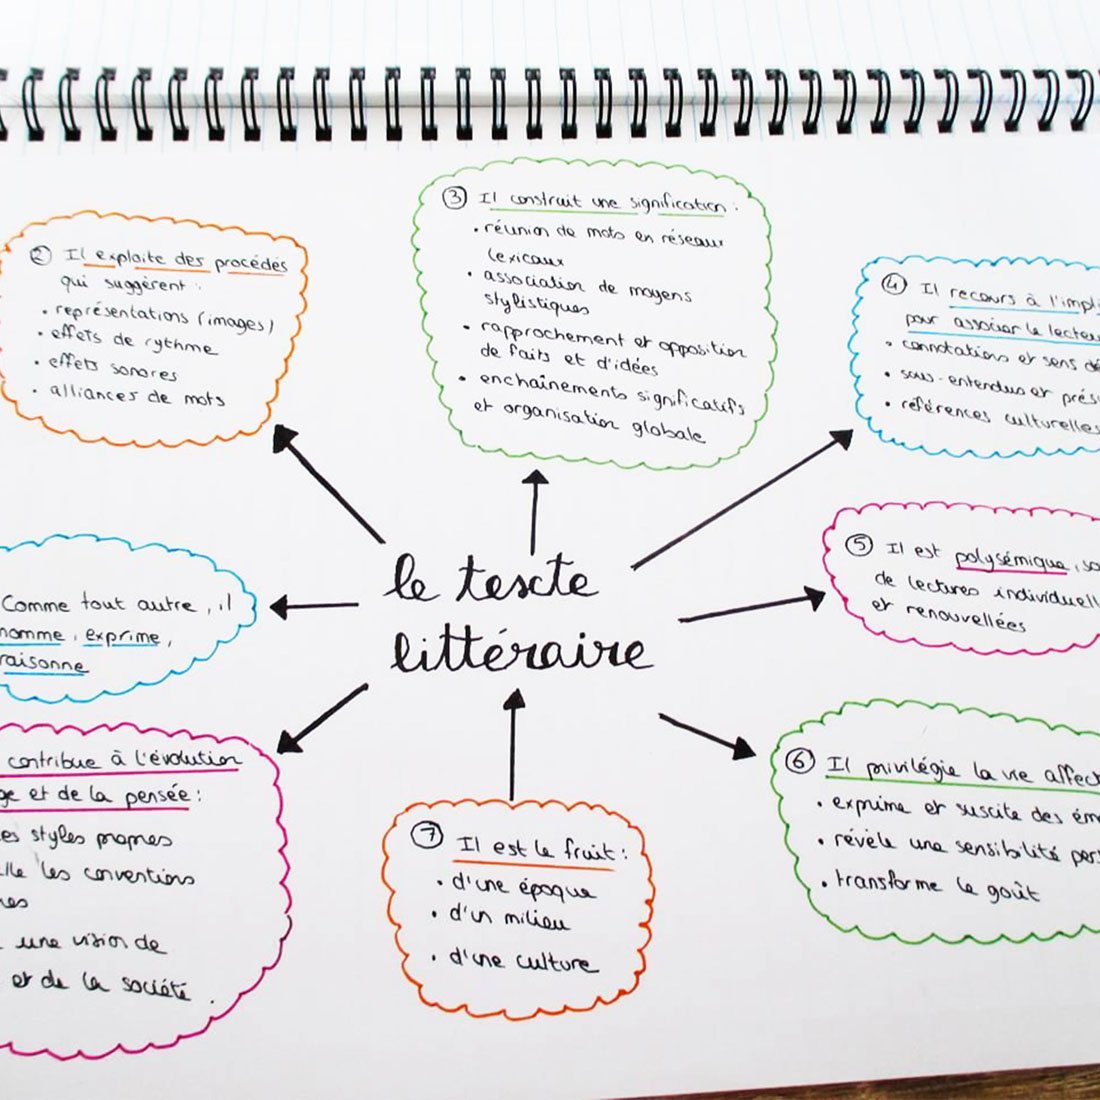 le texte
littéraire
Comme tout autre, il
nomme, exprime,
raisonne
② Il exploite des procédés
qui suggèrent :
• représentations (images)
• effets de rythme
• effets sonores
• alliances de mots
③ Il construit une signification :
• réunion de mots en réseaux
lexicaux
• association de moyens
stylistiques
• rapprochement et opposition
de faits et d'idées
• enchaînements significatifs
et organisation globale
④ Il recours à l'impli
pour associer le lecteu
• connotations et sens dé
• sous-entendus et prés
• références culturelles
⑤ Il est polysémique, so
de lectures individuell
et renouvellées
⑥ Il privilégie la vie affect
• exprime et suscite des ém
• révèle une sensibilité per
• transforme le goût
⑦ Il est le fruit :
• d'une époque
• d'un milieu
• d'une culture
contribue à l'évolution
ge et de la pensée :
es styles propres
lle les conventions
res
une vision de
et de la société.